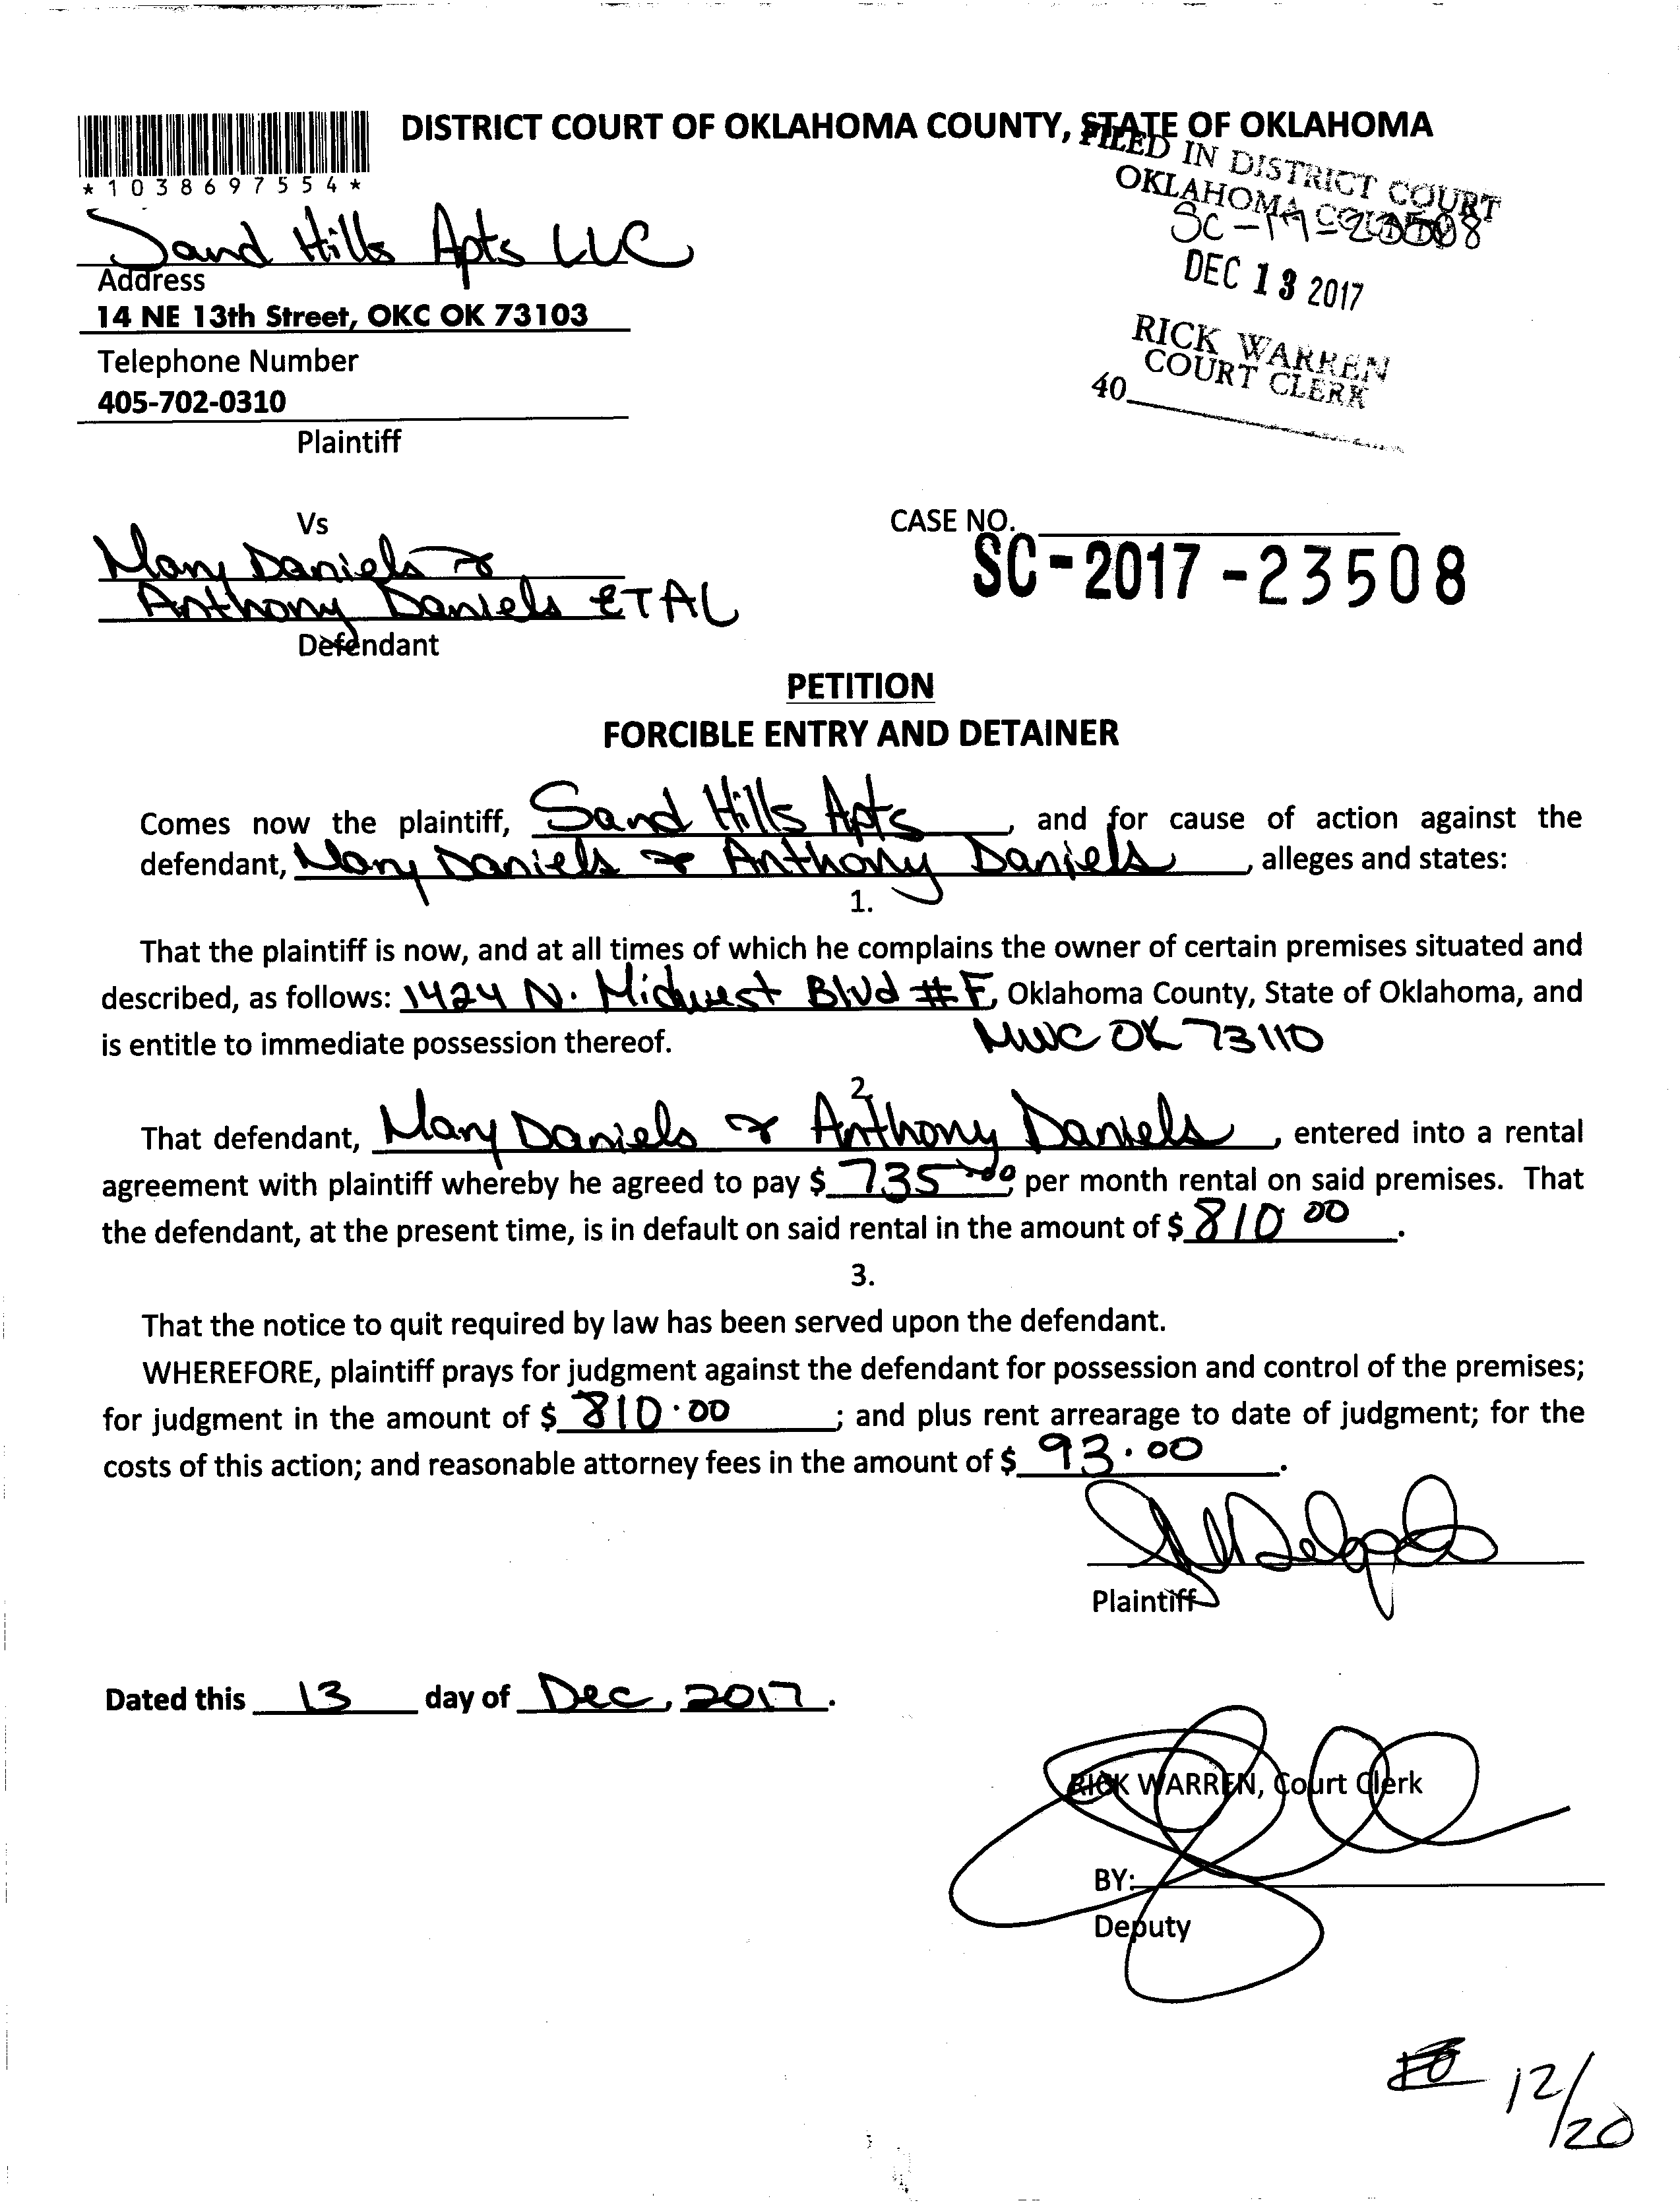 DISTRICT COURT OF OKLAHOMA COUNTY, STATE OF OKLAHOMA
*1038697554*
FILED IN DISTRICT COURT
OKLAHOMA COUNTY
SC-17-23508
DEC 13 2017
RICK WARREN
COURT CLERK
40
Sand Hills Apts LLC
Address
14 NE 13th Street, OKC OK 73103
Telephone Number
405-702-0310
Plaintiff
Vs
Mary Daniels &
Anthony Daniels ETAL
Defendant
CASE NO.
SC-2017-23508
PETITION
FORCIBLE ENTRY AND DETAINER
Comes now the plaintiff, Sand Hills Apts, and for cause of action against the
defendant, Mary Daniels & Anthony Daniels, alleges and states:
1.
That the plaintiff is now, and at all times of which he complains the owner of certain premises situated and
described, as follows: 1424 N. Midwest Blvd #F, Oklahoma County, State of Oklahoma, and
is entitle to immediate possession thereof. MWC OK 73110
2.
That defendant, Mary Daniels & Anthony Daniels, entered into a rental
agreement with plaintiff whereby he agreed to pay $ 735.00, per month rental on said premises. That
the defendant, at the present time, is in default on said rental in the amount of $ 810 00.
3.
That the notice to quit required by law has been served upon the defendant.
WHEREFORE, plaintiff prays for judgment against the defendant for possession and control of the premises;
for judgment in the amount of $ 810.00; and plus rent arrearage to date of judgment; for the
costs of this action; and reasonable attorney fees in the amount of $ 93.00.
Plaintiff
Dated this 13 day of Dec, 2017.
RICK WARREN, Court Clerk
BY:
Deputy
12/20